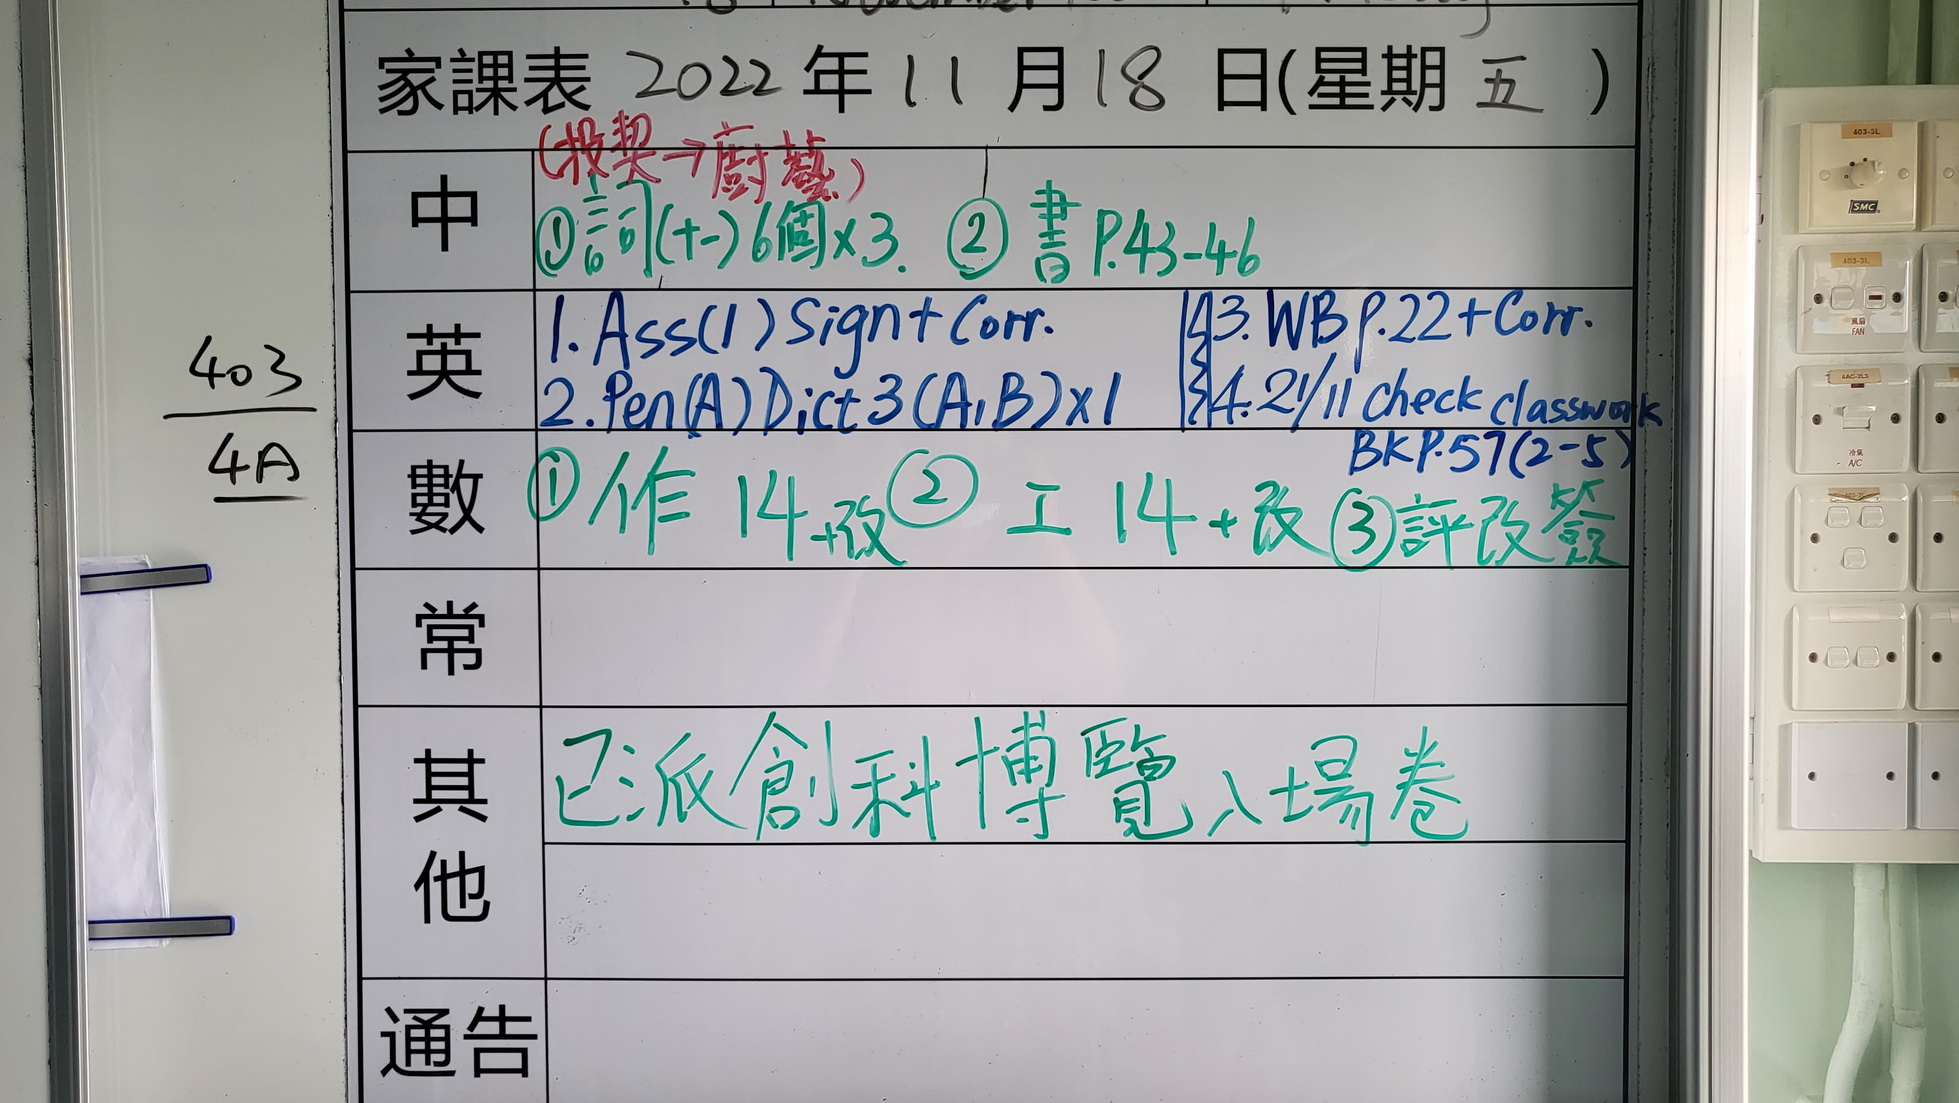 家課表 2022 年 11 月 18 日(星期 五 )
(投契→廚藝)
中 ①詞(十一)6個x3. ②書 P.43-46
英 1. Ass(1) Sign + Corr. 3. WB p.22 + Corr.
2. Pen(A) Dict 3 (A,B) x1 4. 21/11 check classwork
BK P.57 (2-5)
數 ①作 14 +改 ② 工 14 + 改 ③評改簽
常
其他 已派創科博覽入場卷
通告
403
4A
403-3L
SMC
403-3L
風扇
FAN
冷氣
A/C